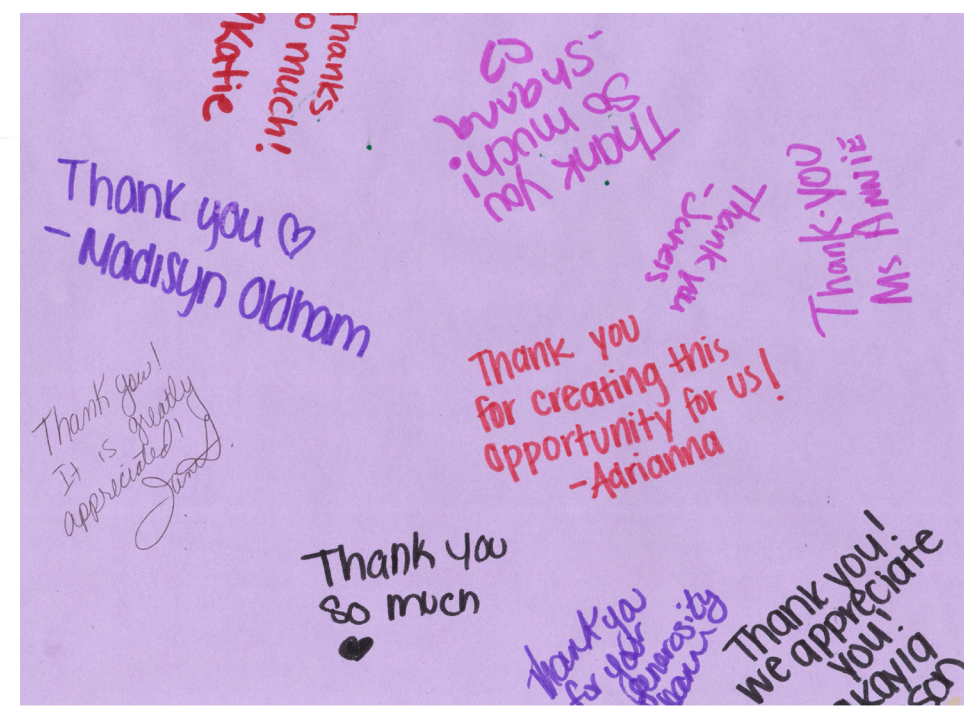 Thanks
so much!
Katie
Thank you
so much!
- Shanna
Thank you ♡
- Madisyn Oldham
Thank you
Thank you
Ms
Thank you
for creating this
opportunity for us!
- Adrianna
Thank you!
It is greatly
appreciated!
Thank you
so much
♥
Thank you
for your
generosity
Thank you!
we appreciate
you!